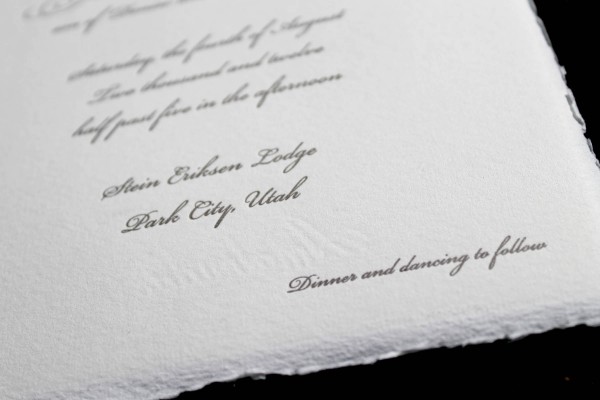 son of
Saturday, the fourth of August
Two thousand and twelve
half past five in the afternoon
Stein Eriksen Lodge
Park City, Utah
Dinner and dancing to follow